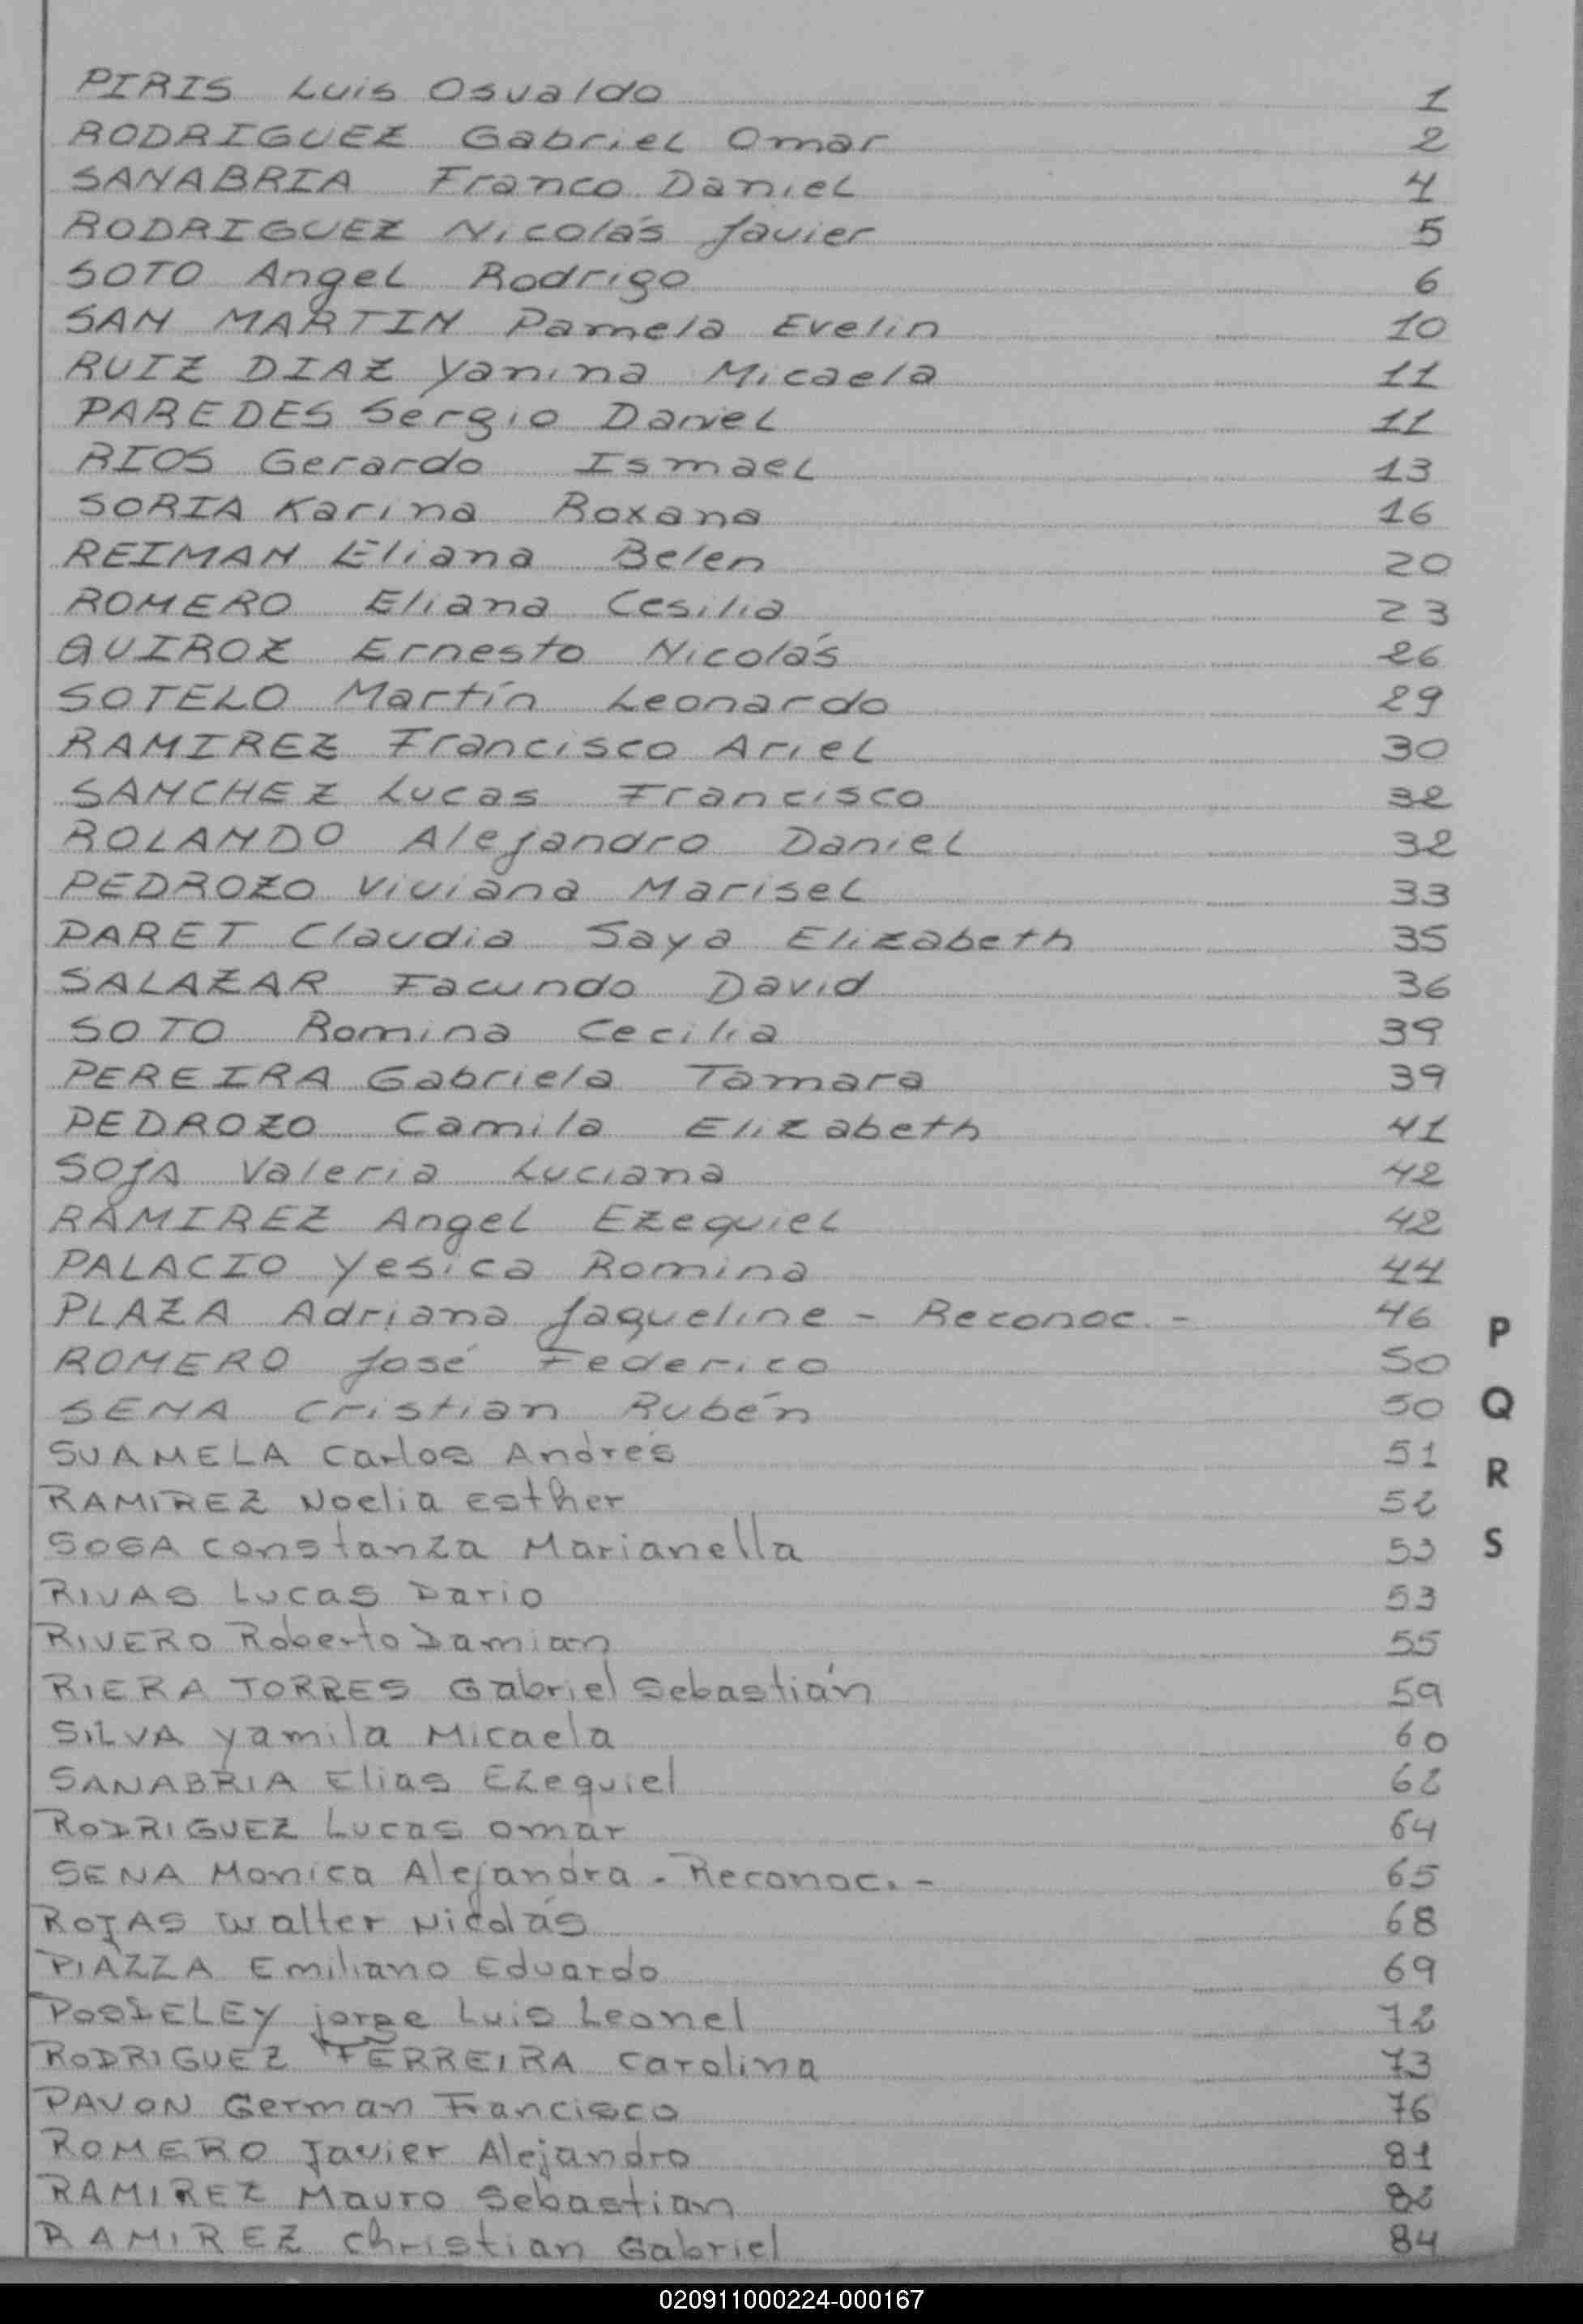 PIRIS Luis Osvaldo 1
RODRIGUEZ Gabriel Omar 2
SANABRIA Franco Daniel 4
RODRIGUEZ Nicolás Javier 5
SOTO Angel Rodrigo 6
SAN MARTIN Pamela Evelin 10
RUIZ DIAZ Yanina Micaela 11
PAREDES Sergio Daniel 11
RIOS Gerardo Ismael 13
SORIA Karina Roxana 16
REIMAN Eliana Belen 20
ROMERO Eliana Cesilia 23
QUIROZ Ernesto Nicolás 26
SOTELO Martín Leonardo 29
RAMIREZ Francisco Ariel 30
SANCHEZ Lucas Francisco 32
ROLANDO Alejandro Daniel 32
PEDROZO Viviana Marisel 33
PARET Claudia Saya Elizabeth 35
SALAZAR Facundo David 36
SOTO Romina Cecilia 39
PEREIRA Gabriela Tamara 39
PEDROZO Camila Elizabeth 41
SOJA Valeria Luciana 42
RAMIREZ Angel Ezequiel 42
PALACIO Yesica Romina 44
PLAZA Adriana Jaqueline - Reconoc. - 46
P
ROMERO José Federico 50
SENA Cristian Rubén 50
Q
SUAMELA Carlos Andrés 51
R
RAMIREZ Noelia Esther 52
SOSA Constanza Marianella 53
S
RIVAS Lucas Dario 53
RIVERO Roberto Damian 55
RIERA TORRES Gabriel Sebastián 59
SILVA Yamila Micaela 60
SANABRIA Elias Ezequiel 62
RODRIGUEZ Lucas Omar 64
SENA Monica Alejandra - Reconoc. - 65
ROJAS Walter Nicolás 68
PIAZZA Emiliano Eduardo 69
Jorge Luis Leonel 72
RODRIGUEZ FERREIRA Carolina 73
PAVON German Francisco 76
ROMERO Javier Alejandro 81
RAMIREZ Mauro Sebastian 82
RAMIREZ Christian Gabriel 84
020911000224-000167